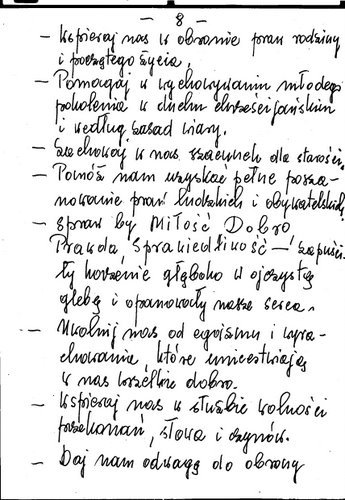 - 8 -
- Wspieraj nas w obronie praw rodziny
i poczętego życia.
- Pomagaj w wychowywaniu młodego
pokolenia w duchu chrześcijańskim
i według zasad wiary.
- Zachowaj w nas szacunek dla starości.
- Pomóż nam uzyskać pełne posza-
nowanie praw ludzkich i obywatelskich
- spraw by Miłość Dobro
Prawda, Sprawiedliwość - zapuści-
ły korzenie głęboko w ojczystą
glebę i opanowały nasze serca.
- Uwolnij nas od egoizmu i wyra-
chowania, które unicestwiają
w nas wszelkie dobro.
- Wspieraj nas w służbie wolności
przekonań, słowa i czynów.
- Daj nam odwagę do obrony